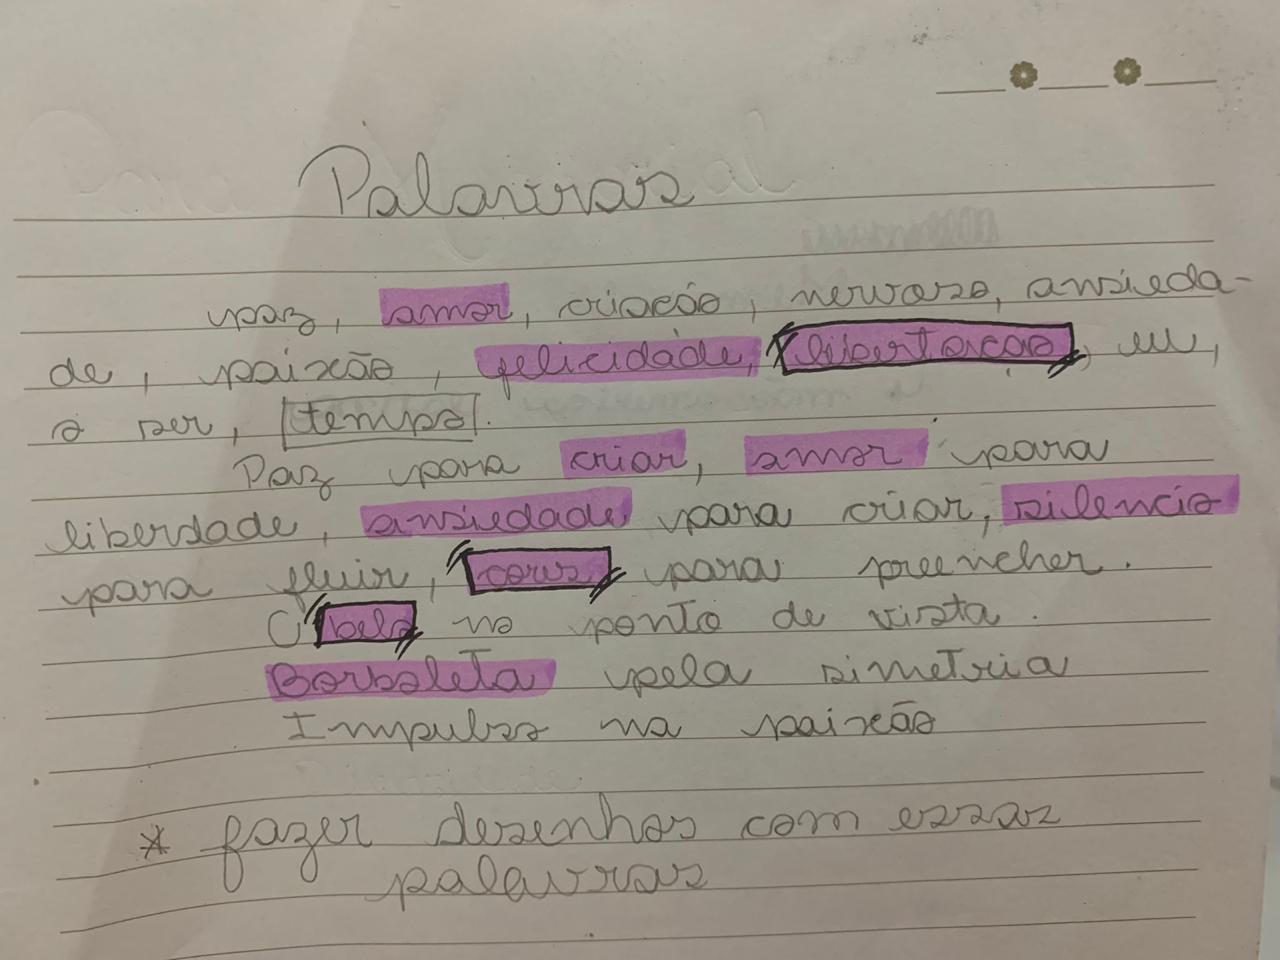 Palavras
paz, amor, criação, nervoso, ansieda-
de, paixão, felicidade, libertação, eu,
o ser, tempo.
Paz para criar, amor para
liberdade, ansiedade para criar, silencio
para fluir, cores para preencher.
O belo no ponto de vista.
Borboleta pela simetria
Impulso na paixão
* fazer desenhos com essas
palavras